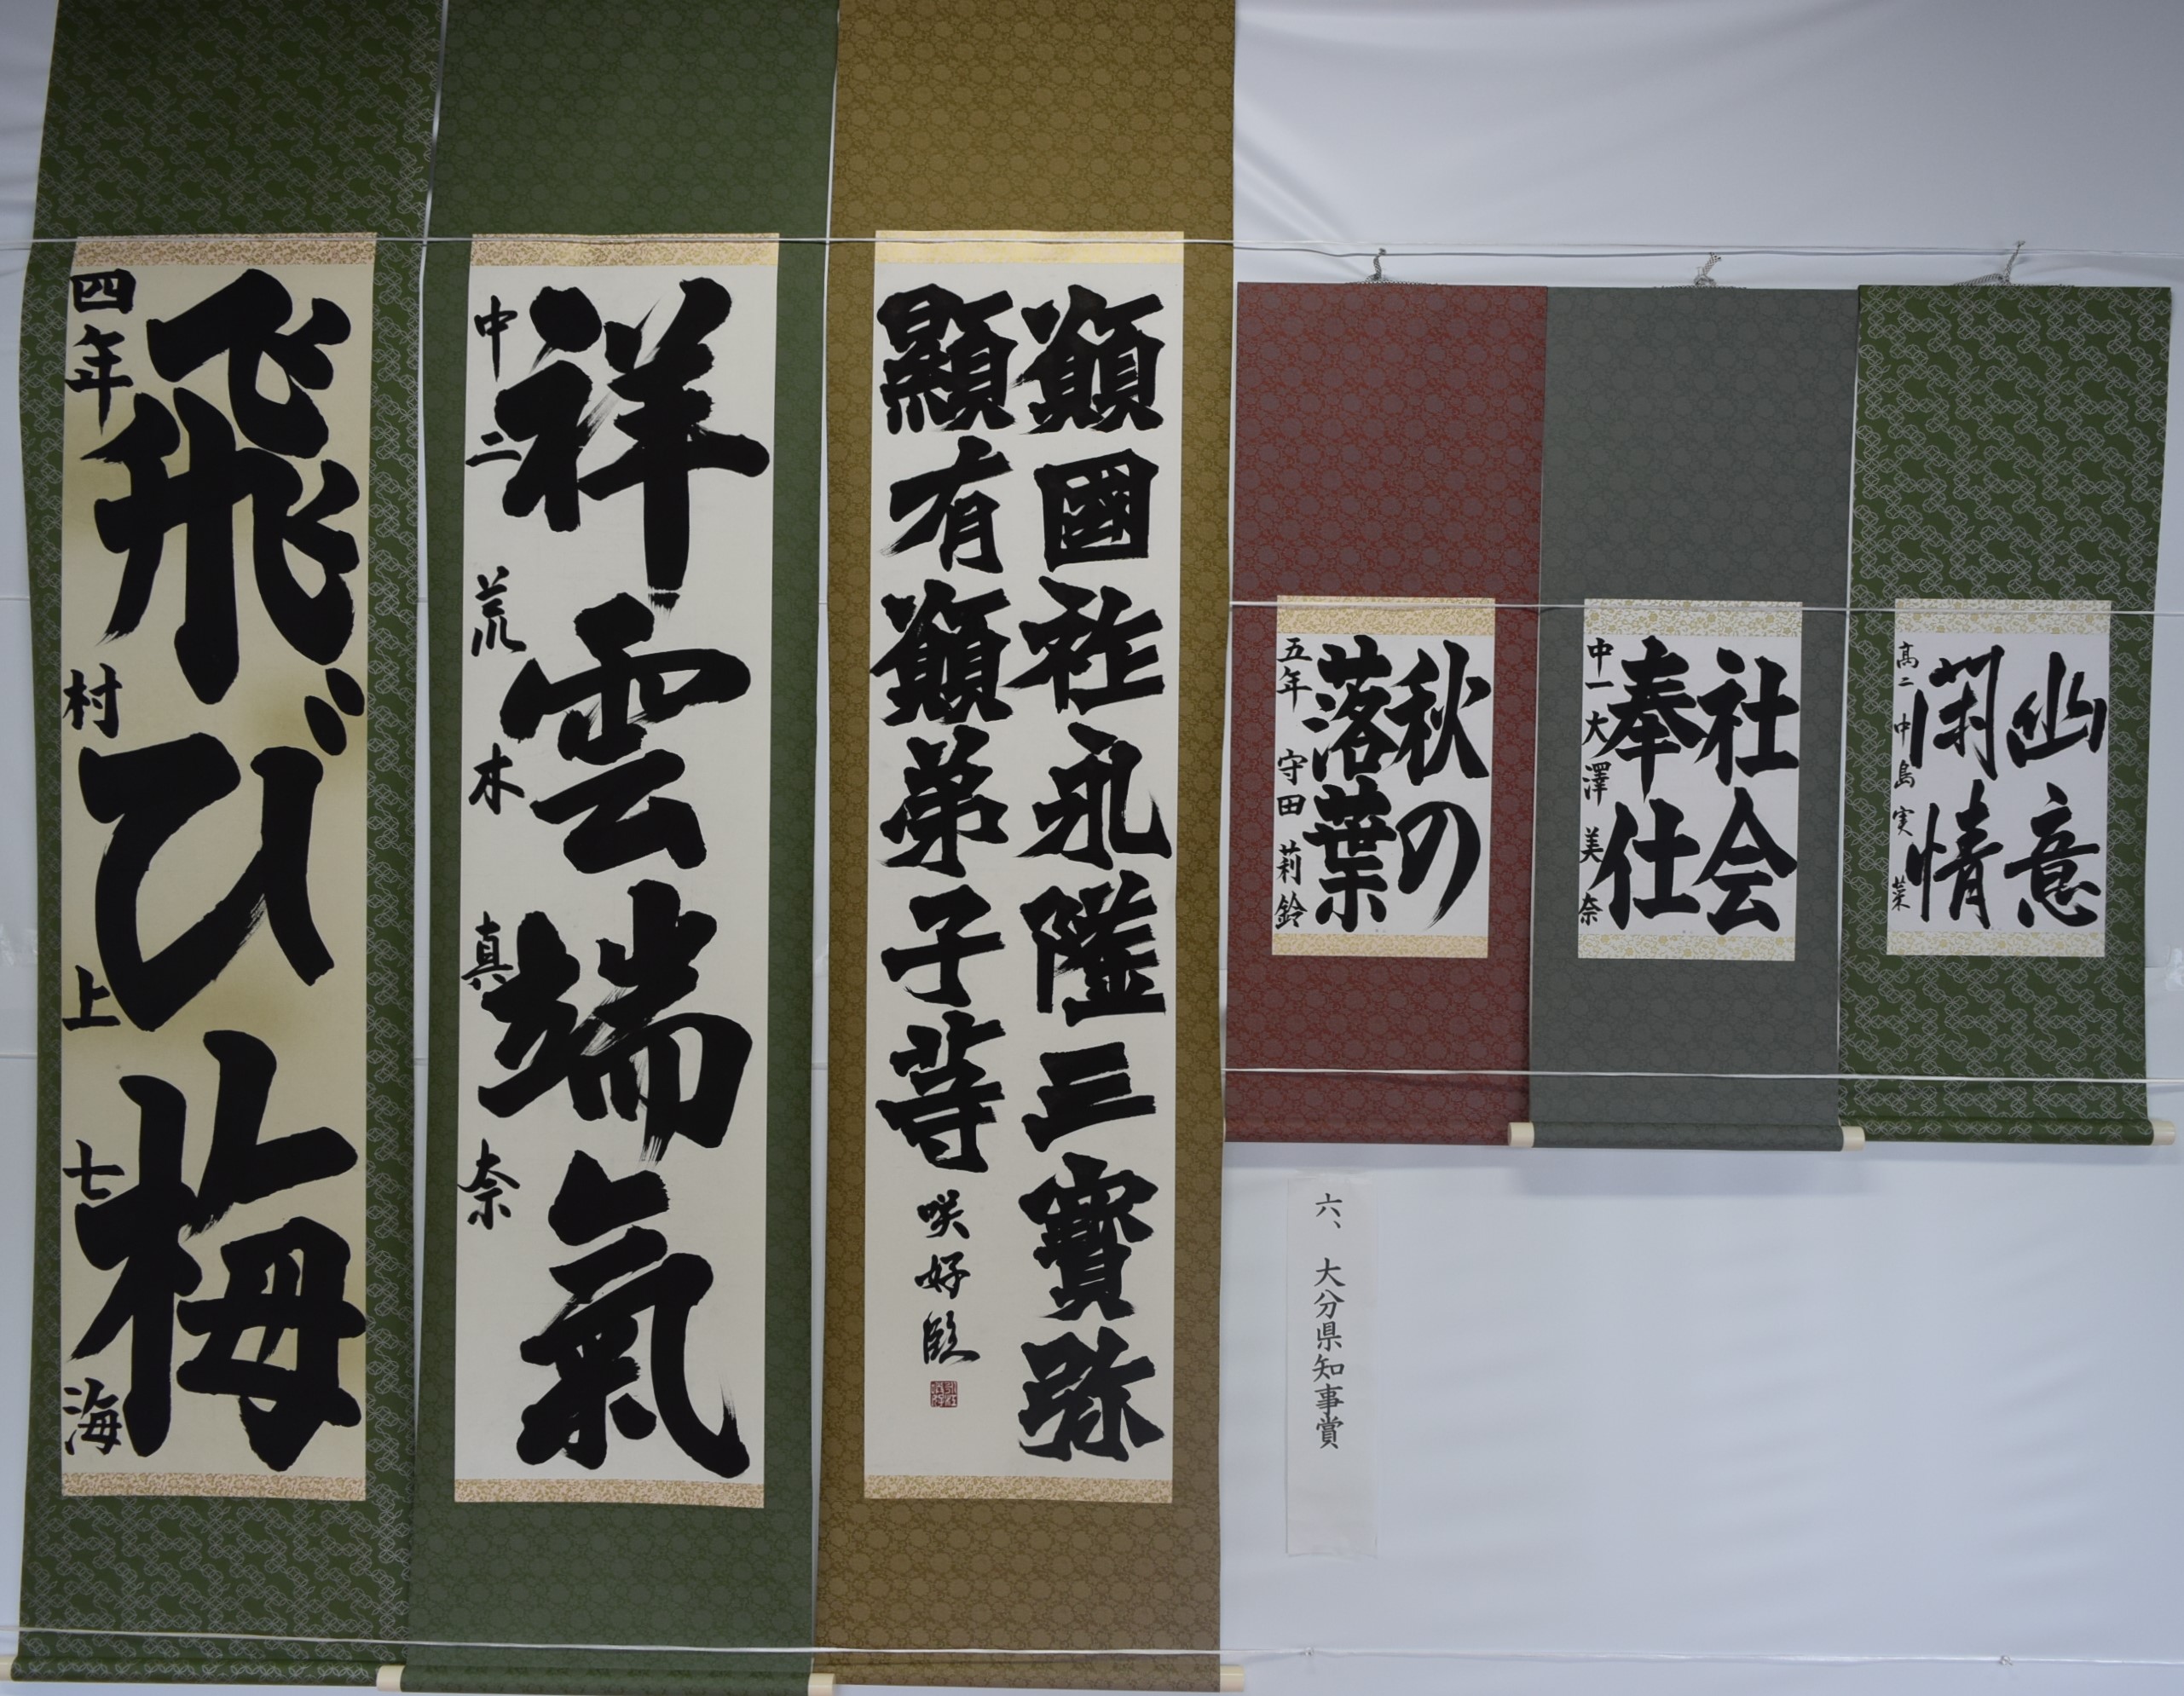 幽意
閑情
高二 中島 実菜
社会
奉仕
中一 大澤 美奈
秋の
落葉
五年 守田 莉鈴
六、大分県知事賞
願國祚永隆三寶弥
顯有願弟子等 咲好臨
祥雲端氣
中二 荒木 真奈
飛び梅
四年 村上七海